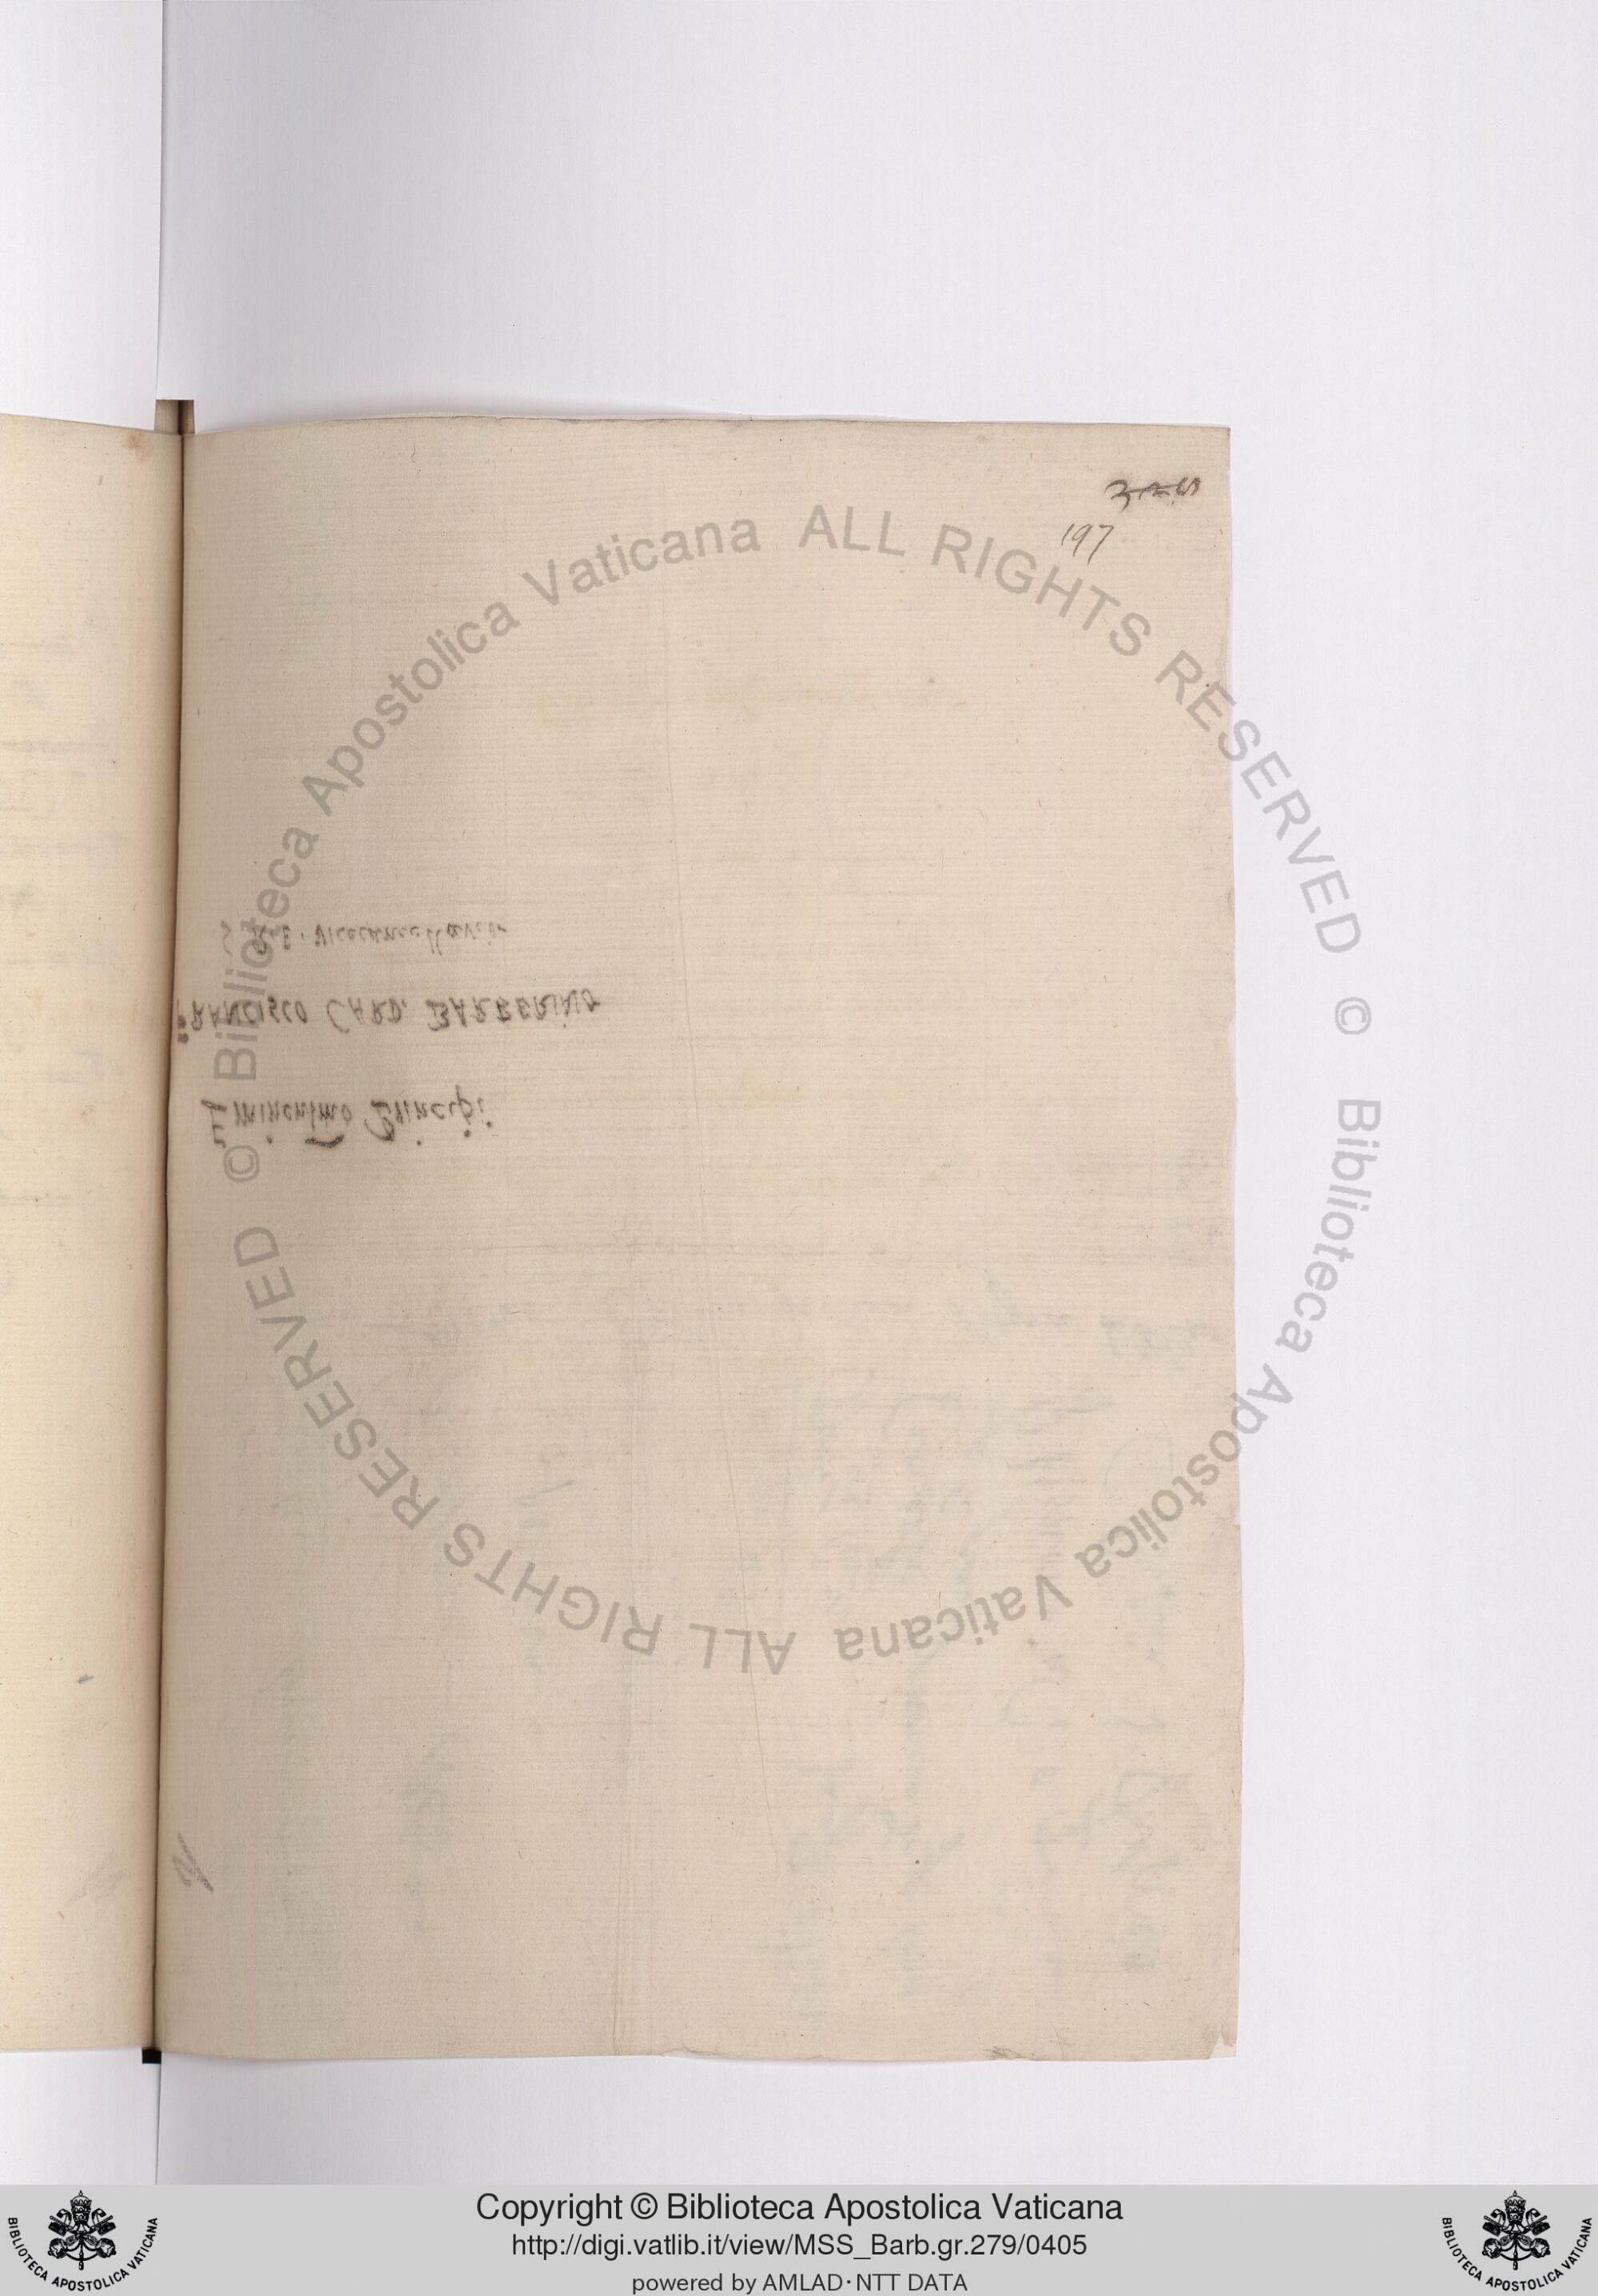 197
Eminentmo Principi
FRANCISCO CARD. BARBERINO
S. R. E. Vicecancellario
© Biblioteca Apostolica Vaticana ALL RIGHTS RESERVED
© Biblioteca Apostolica Vaticana ALL RIGHTS RESERVED
Copyright © Biblioteca Apostolica Vaticana
http://digi.vatlib.it/view/MSS_Barb.gr.279/0405
powered by AMLAD·NTT DATA
BIBLIOTECA APOSTOLICA VATICANA
BIBLIOTECA APOSTOLICA VATICANA